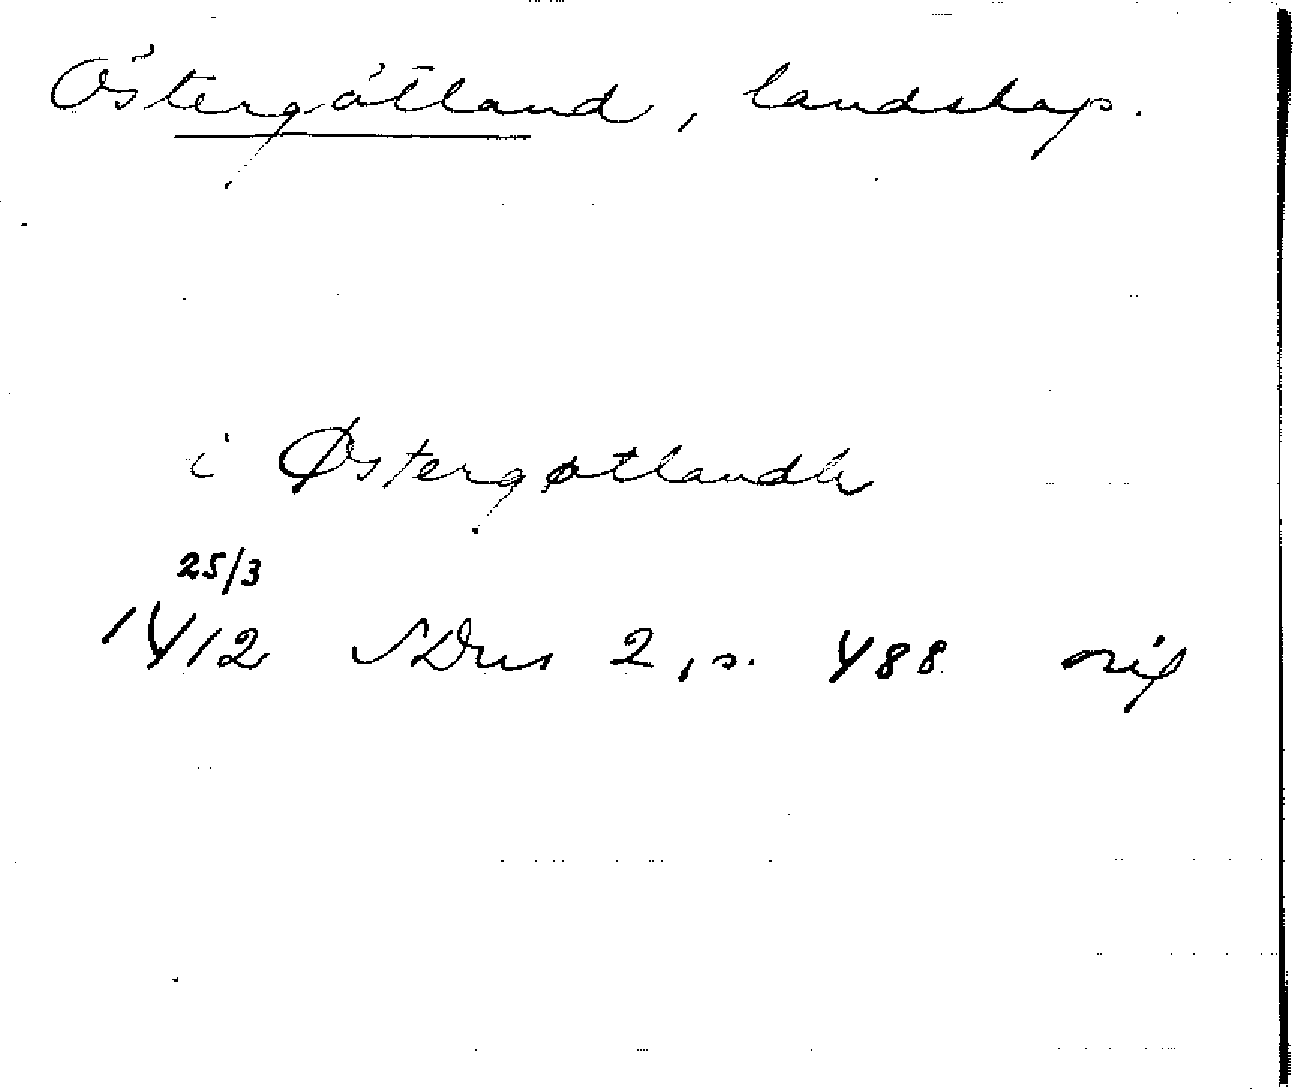 Östergötland, landskap.
i Østergøtlandh
25/3
1412 SDns 2, s. 488 orig